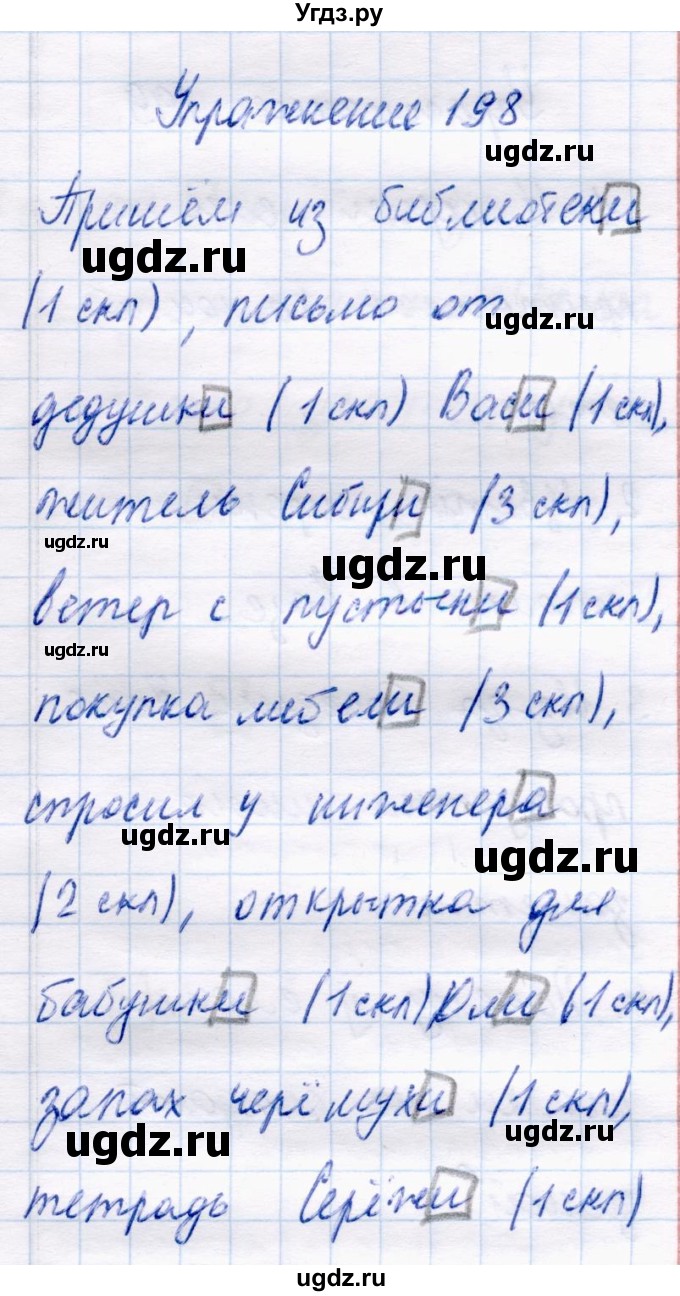 Угдз.ру
Упражнение 198
ugdz.ru
Пришём из библиотеки
ugdz.ru
(1 скл), письмо от
ugdz.ru
дедушки (1 скл) Васи (1 скл),
житель Сибири (3 скл),
ugdz.ru
ugdz.ru
ветер с пустыни (1 скл),
ugdz.ru
покупка мебели (3 скл),
спросил у инженера
ugdz.ru
ugdz.ru
(2 скл), открытка для
бабушки (1 скл) Юли (1 скл),
запах черёмухи (1 скл),
ugdz.ru
ugdz.ru
тетрадь Серёжи (1 скл)
ugdz.ru